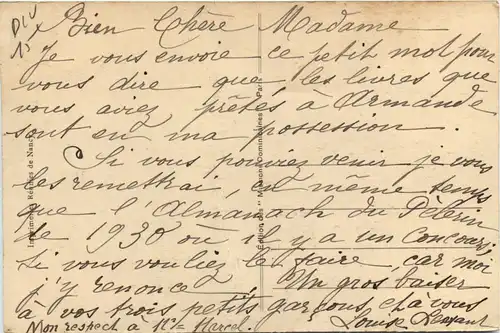 Bien Chère Madame
Je vous envoie ce petit mot pour
vous dire que les livres que
vous aviez prêtés à Armande
sont en ma possession.
Si vous pouviez venir je vous
les remettrai, en même temps
que l'Almanach du Pèlerin
de 1930 où il y a un concours;
si vous vouliez le faire, car moi
j'y renonce. Un gros baiser
à vos trois petits garçons, et à vous
Louise
Mon respect à Mr Marcel.
DLV
15
Imprimeries Réunies de Nancy
Editions des "Missions Dominicaines"